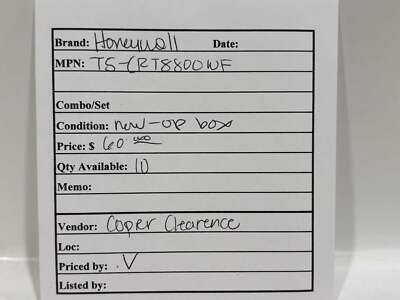 Brand: Honeywell Date:
MPN: TS-CRT8800WF
Combo/Set
Condition: new-op box
Price: $ 60.
Qty Available: (1)
Memo:
Vendor: Coper Clearence
Loc:
Priced by: .V
Listed by: